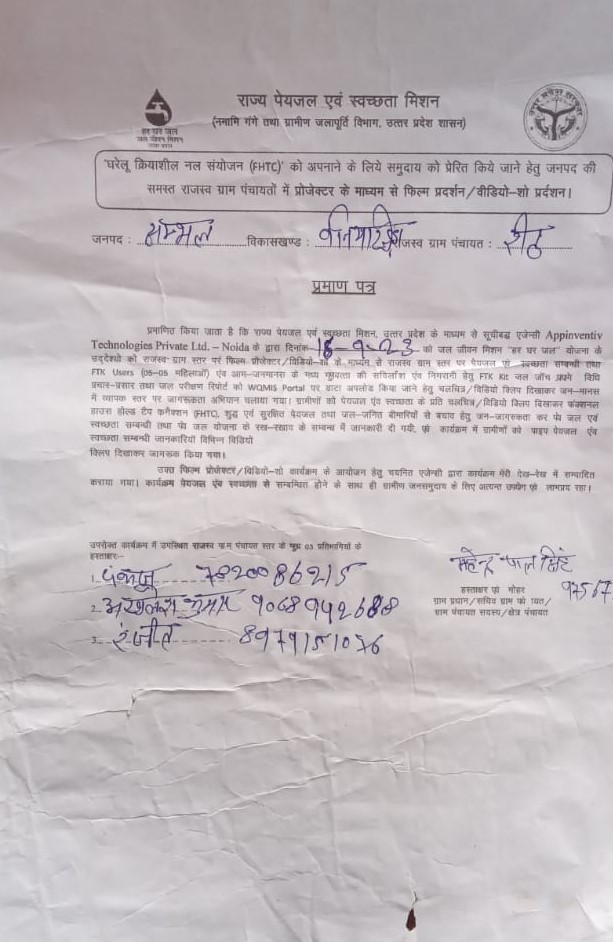 राज्य पेयजल एवं स्वच्छता मिशन
(नमामि गंगे तथा ग्रामीण जलापूर्ति विभाग, उत्तर प्रदेश शासन)
हर घर जल
जल जीवन मिशन
'घरेलू क्रियाशील नल संयोजन (FHTC)' को अपनाने के लिये समुदाय को प्रेरित किये जाने हेतु जनपद की
समस्त राजस्व ग्राम पंचायतों में प्रोजेक्टर के माध्यम से फिल्म प्रदर्शन/वीडियो-शो प्रर्दशन।
जनपद : सम्भल विकासखण्ड : राजस्व ग्राम पंचायत :
प्रमाण पत्र
प्रमाणित किया जाता है कि राज्य पेयजल एवं स्वच्छता मिशन, उत्तर प्रदेश के माध्यम से सूचीबद्ध एजेन्सी Appinventiv
Technologies Private Ltd. – Noida के द्वारा दिनांक 18-9-23 को जल जीवन मिशन "हर घर जल" योजना के
उद्देश्यो को राजस्व ग्राम स्तर पर फिल्म प्रोजेक्टर/विडियो-शो के माध्यम से राजस्व ग्राम स्तर पर पेयजल एवं स्वच्छता सम्बन्धी तथा
FTK Users (05-05 महिलाओं) एंव आम-जनमानस के मध्य गुणवत्ता की संचिलाँश एंव निगरानी हेतु FTK Kit जल जाँच विधि
प्रचार-प्रसार तथा जल परीक्षण रिपोर्ट को WQMIS Portal पर डाटा अपलोड किया जाने हेतु चलचित्र/विडियो क्लिप दिखाकर जन-मानस
में व्यापक स्तर पर जागरूकता अभियान चलाया गया। ग्रामीणों को पेयजल एंव स्वच्छता के प्रति चलचित्र/विडियो क्लिप दिखाकर फंक्शनल
हाउस होल्ड टैप कनैक्शन (FHTC), शुद्ध एवं सुरक्षित पेयजल तथा जल-जनित बीमारियों से बचाव हेतु जन-जागरुकता कर पेय जल एवं
स्वच्छता सम्बन्धी तथा पेय जल योजना के रख-रखाव के सम्बन्ध में जानकारी दी गयी, एवं कार्यक्रम में ग्रामीणों को पाइप पेयजल एंव
स्वच्छता सम्बन्धी जानकारियां विभिन्न विडियो
क्लिप दिखाकर जागरूक किया गया।
उक्त फिल्म प्रोजेक्टर/विडियो-शो कार्यक्रम के आयोजन हेतु चयनित एजेन्सी द्वारा कार्यक्रम मेरी देख-रेख में सम्पादित
कराया गया। कार्यक्रम पेयजल एंव स्वच्छता से सम्बन्धित होने के साथ ही ग्रामीण जनसमुदाय के लिए अत्यन्त उपयोग एवं लाभप्रद रहा।
उपरोक्त कार्यक्रम में उपस्थित राजस्व ग्राम पंचायत स्तर के मुख्य 03 प्रतिभागियों के
हस्ताक्षर:-
1. पंकज 7820086215
2. अखलेश कुमार 9068942688
3. रंजीत 8979151076
महेन्द्र पाल सिंह
97567
हस्ताक्षर एवं मोहर
ग्राम प्रधान/सचिव ग्राम पंचायत/
ग्राम पंचायत सदस्य/क्षेत्र पंचायत